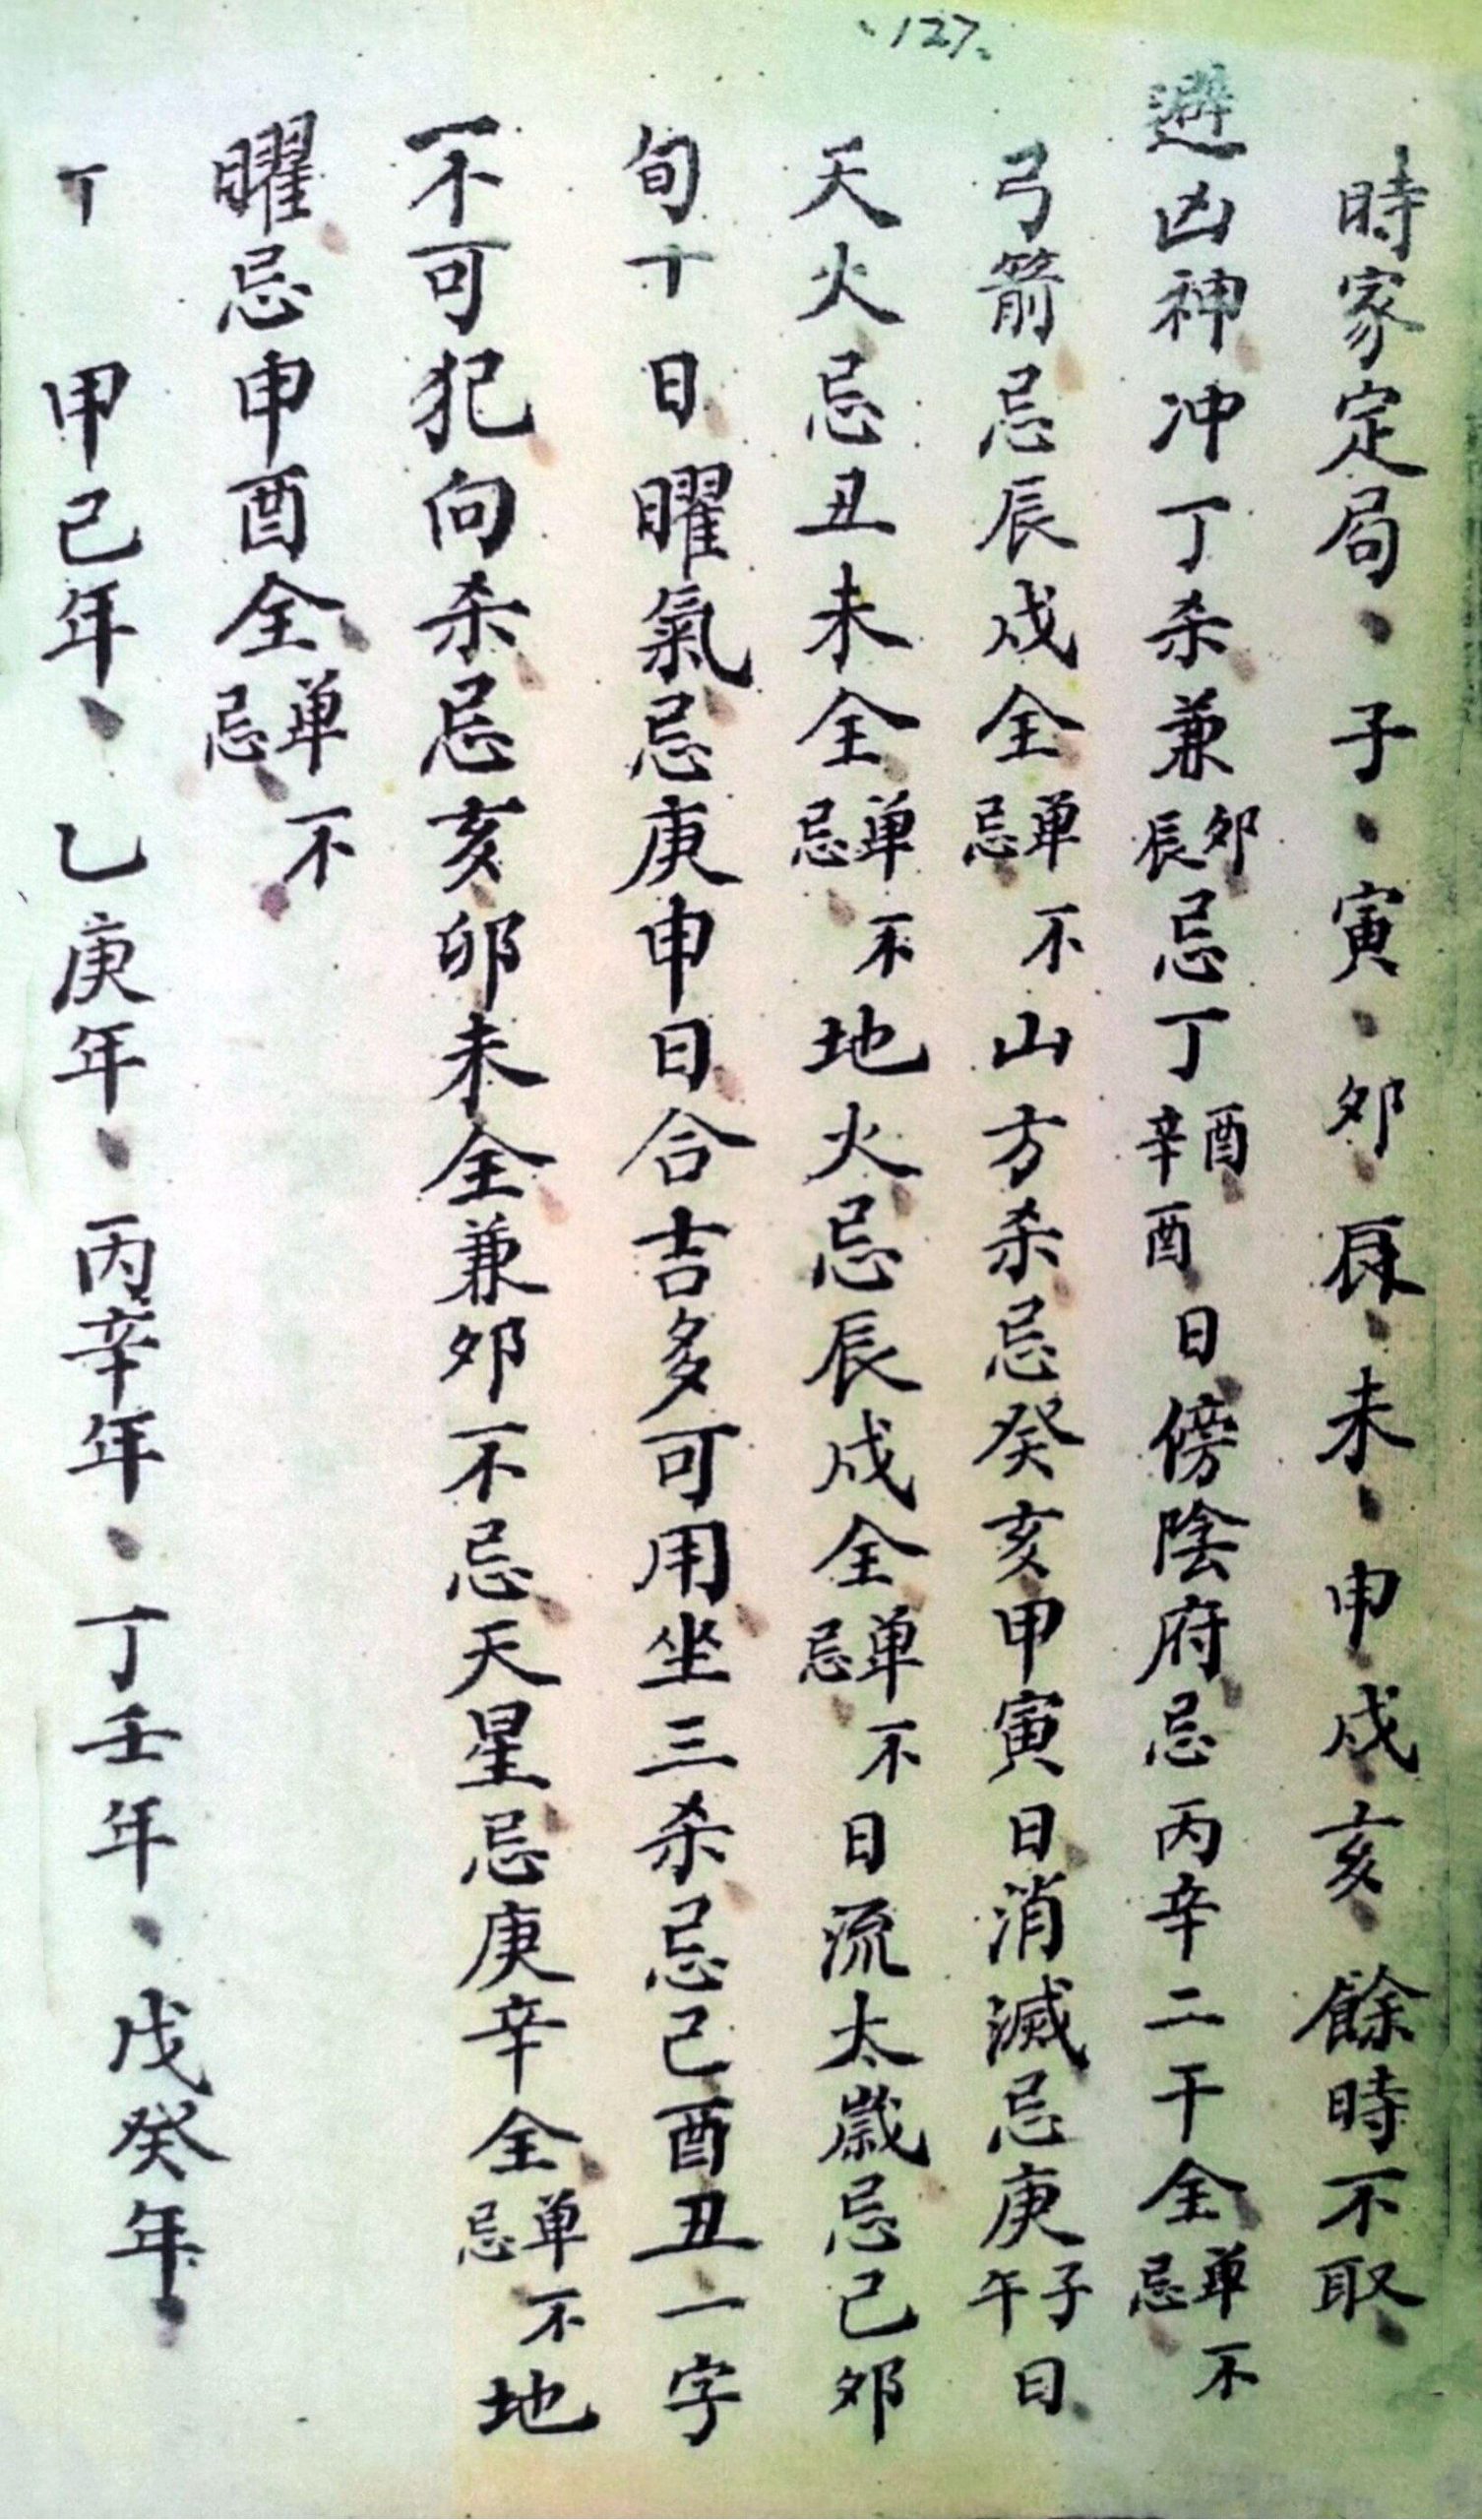 127
時家定局、子、寅、夘、辰、未、申、戌、亥、餘時不取、
避凶神冲丁杀兼夘辰忌丁酉辛酉日傍陰府忌丙辛二干全单不忌
弓箭忌辰戌全单不忌山方杀忌癸亥甲寅日消滅忌庚子午日
天火忌丑未全单不忌地火忌辰戌全单不忌日流太歲忌己夘
旬十日曜氣忌庚申日合吉多可用坐三杀忌己酉丑一字
一不可犯向杀忌亥卯未全兼夘不忌天星忌庚辛全单不忌地
曜忌申酉全单不忌
丁 甲己年、乙庚年、丙辛年、丁壬年、戊癸年、